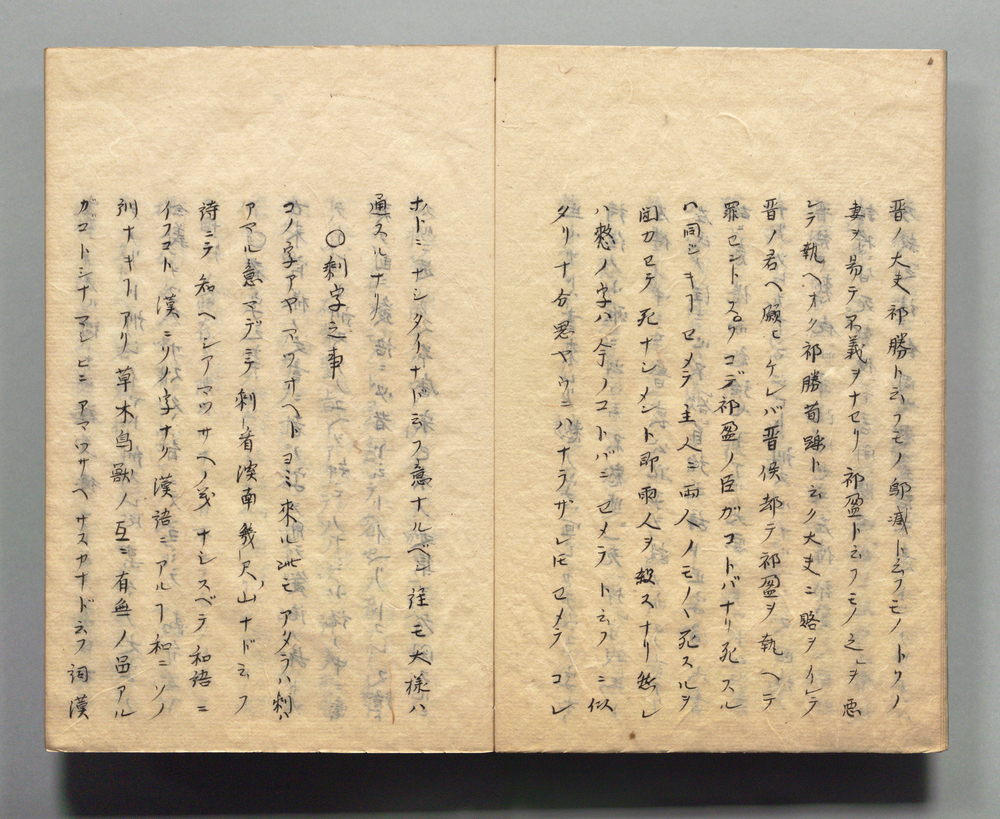 晋ノ大夫祁勝ト云フモノ鄔臧ト云フモノトタノ
妻ヲ易テ不義ヲナセリ祁盈ト云フモノ之ヲ悪
シテ執ヘオク祁勝荀躒ト云ク大夫ニ賂ヲイレテ
晋ノ君ヘ願ヒケレバ晋侯却テ祁盈ヲ執ヘテ
罪セントスルコデ祁盈ノ臣ガコトバナリ死スル
ハ同シキヿセメテ主人ニ両人ノモノヽ死スルヲ
聞カセテ死ナシメント即両人ヲ殺スナリ
ハ憖ノ字ハ今ノコトバニセメテト云フニ似
タリナ分思ヤウニハナラザレ𪜈セメテコレ
ナトニナシターナト云フ意ナルベ
通スルナリ
〇剰字之事
コノ字アヤマツオヘトヨミ來ル此モアタラハ剰ハ
アマル意マデニテ剰ー看溪南幾尺山ナドミフ
詩ニテ知ヘシアマツサヘノ義ナシスベテ和語ニ
イフコト漢ニソノ字ナク漢語ニアルヿ和ニソノ
訓ナキヿアリ草木鳥獣ノ互ニ有無ノ邑アル
ガコトシナマシヒニアマツサヘサスカナド云フ詞漢